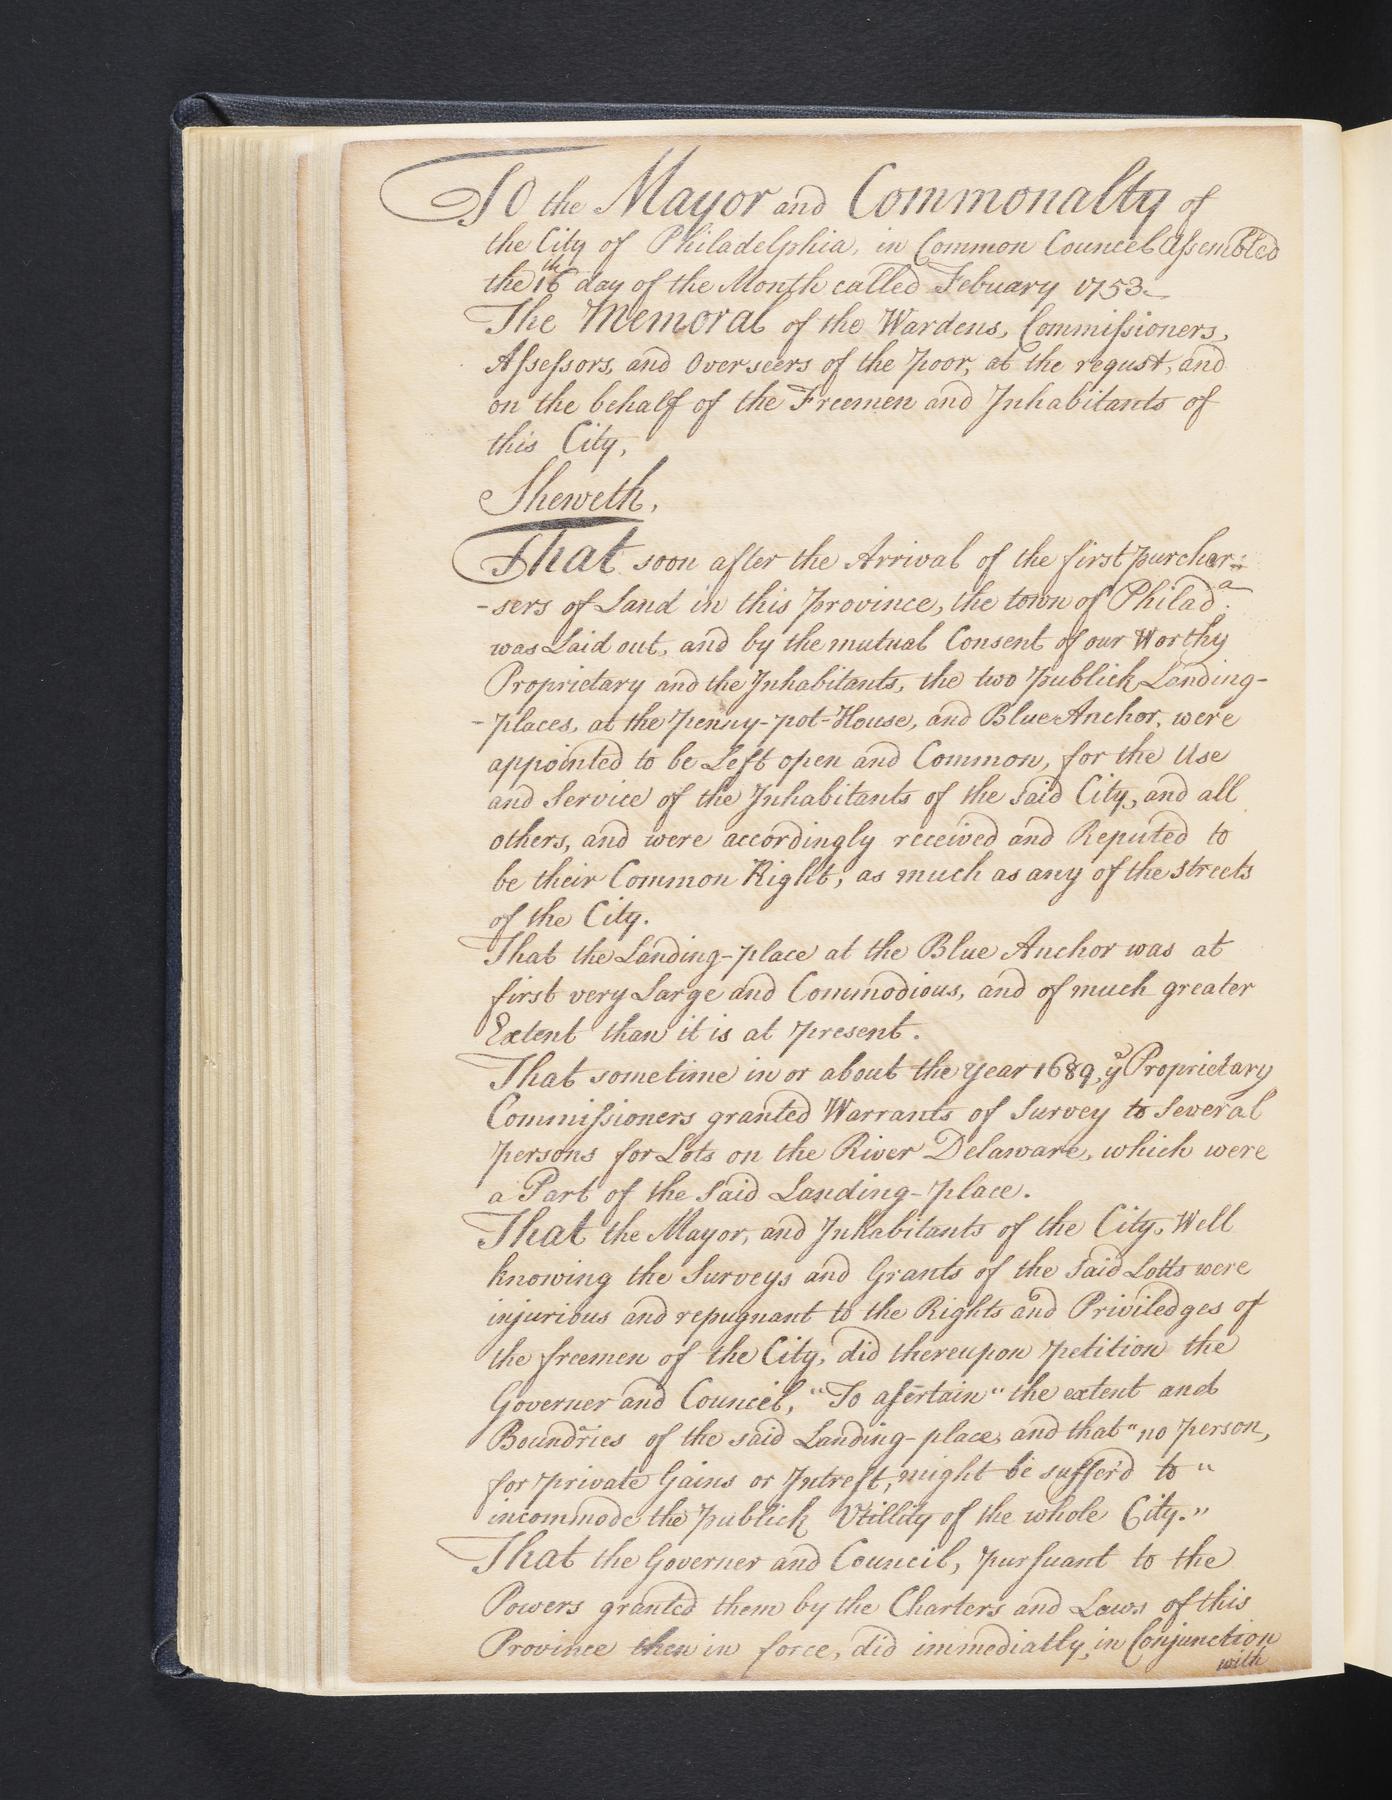 To the Mayor and Commonalty of
the City of Philadelphia, in Common Councel Assembled
the 16th day of the Month called Febuary 1753.
The Memoral of the Wardens, Commissioners,
Assessors, and Overseers of the Poor, at the requst, and
on the behalf of the Freemen and Inhabitants of
this City,
Sheweth,
That soon after the Arrival of the first purchar=
-sers of Land in this Province, the town of Philada.
was Laid out, and by the mutual Consent of our Worthy
Proprietary and the Inhabitants, the two Publick Landing-
-places, at the Penny-pot-House, and Blue Anchor, were
appointed to be Left open and Common, for the Use
and Service of the Inhabitants of the said City, and all
others, and were accordingly received and Reputed to
be their Common Right, as much as any of the streets
of the City.
That the Landing-place at the Blue Anchor was at
first very Large and Commodious, and of much greater
Extent than it is at Present.
That sometime in or about the year 1689, ye Proprietary
Commissioners granted Warrants of Survey to Several
Persons for Lots on the River Delaware, which were
a Part of the said Landing-Place.
That the Mayor, and Inhabitants of the City, Well
knowing the Surveys and Grants of the said Lotts were
injurious and repugnant to the Rights and Priviledges of
the freemen of the City, did thereupon Petition the
Governer and Council, "To asertain" the extent and
Boundries of the said Landing-place, and that "no Person,
for Private Gains or Intrest, might be suffer'd to "
incommode the Publick Utillity of the whole City."
That the Governer and Council, Pursuant to the
Powers granted them by the Charters and Laws of this
Province then in force, did immediatly, in Conjunction
with